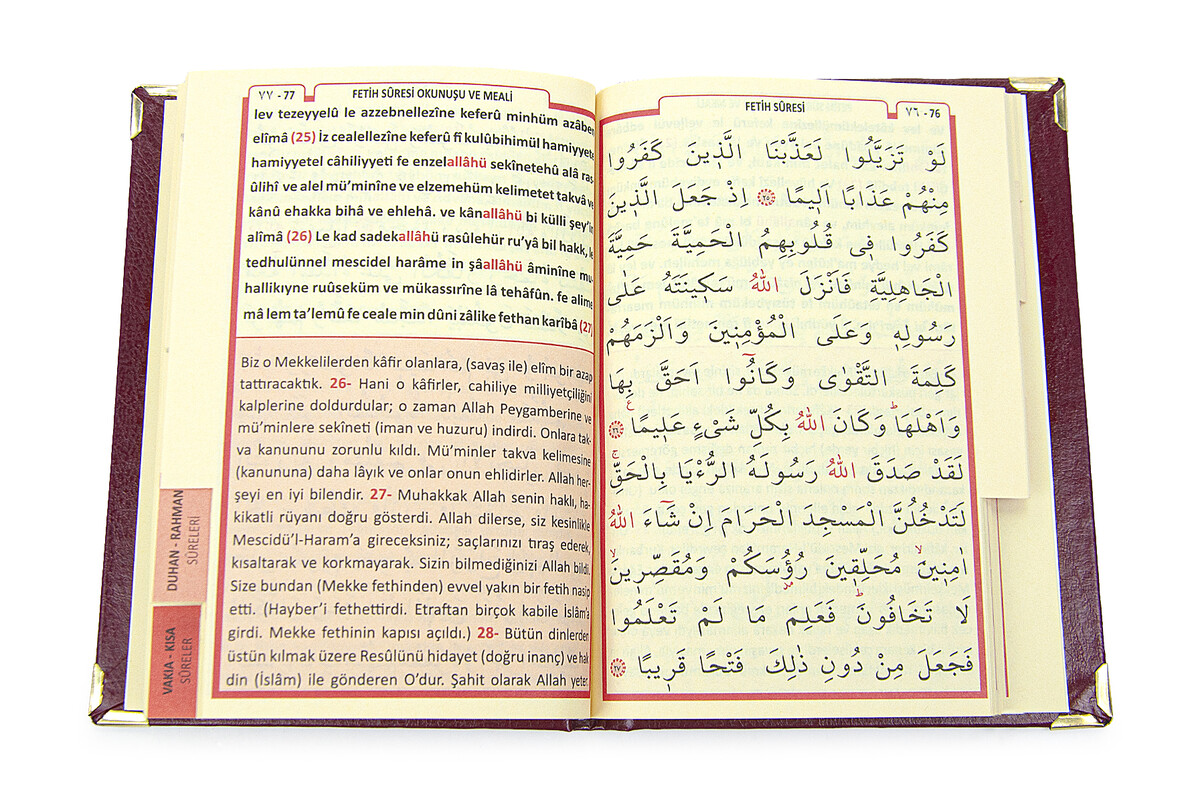 ٧٦ - 76
FETİH SÛRESİ
لَوْ تَزَيَّلُوا لَعَذَّبْنَا الَّذ۪ينَ كَفَرُوا
مِنْهُمْ عَذَابًا اَل۪يمًا ﴿٢٥﴾ اِذْ جَعَلَ الَّذ۪ينَ
كَفَرُوا ف۪ى قُلُوبِهِمُ الْحَمِيَّةَ حَمِيَّةَ
الْجَاهِلِيَّةِ فَاَنْزَلَ اللّٰهُ سَك۪ينَتَهُ عَلٰى
رَسُولِه۪ وَعَلَى الْمُؤْمِن۪ينَ وَاَلْزَمَهُمْ
كَلِمَةَ التَّقْوٰى وَكَانُٓوا اَحَقَّ بِهَا
وَاَهْلَهَاۜ وَكَانَ اللّٰهُ بِكُلِّ شَىْءٍ عَل۪يمًا ﴿٢٦﴾
لَقَدْ صَدَقَ اللّٰهُ رَسُولَهُ الرُّءْيَا بِالْحَقِّۚ
لَتَدْخُلُنَّ الْمَسْجِدَ الْحَرَامَ اِنْ شَٓاءَ اللّٰهُ
اٰمِن۪ينَۙ مُحَلِّق۪ينَ رُؤُسَكُمْ وَمُقَصِّر۪ينَۙ
لَا تَخَافُونَۜ فَعَلِمَ مَا لَمْ تَعْلَمُوا
فَجَعَلَ مِنْ دُونِ ذٰلِكَ فَتْحًا قَر۪يبًا ﴿٢٧﴾
٧٧ - 77
FETİH SÛRESİ OKUNUŞU VE MEALİ
lev tezeyyelû le azzebnellezîne keferû minhüm azâben
elîmâ (25) İz cealellezîne keferû fî kulûbihimül hamiyyete
hamiyyetel câhiliyyeti fe enzelallâhü sekînetehû alâ ras
ûlihî ve alel mü'minîne ve elzemehüm kelimetet takvâ ve
kânû ehakka bihâ ve ehlehâ. ve kânallâhü bi külli şey'in
alîmâ (26) Le kad sadekallâhü rasûlehür ru'yâ bil hakk, le
tedhulünnel mescidel harâme in şâallâhü âminîne mu-
hallikıyne ruûseküm ve mükassırîne lâ tehâfûn. fe alime
mâ lem ta'lemû fe ceale min dûni zâlike fethan karîbâ (27)
Biz o Mekkelilerden kâfir olanlara, (savaş ile) elîm bir azap
tattıracaktık. 26- Hani o kâfirler, cahiliye milliyetçiliğini
kalplerine doldurdular; o zaman Allah Peygamberine ve
mü'minlere sekîneti (iman ve huzuru) indirdi. Onlara tak-
va kanununu zorunlu kıldı. Mü'minler takva kelimesine
(kanununa) daha lâyık ve onlar onun ehlidirler. Allah her-
şeyi en iyi bilendir. 27- Muhakkak Allah senin haklı, ha-
kikatli rüyanı doğru gösterdi. Allah dilerse, siz kesinlikle
Mescidü'l-Haram'a gireceksiniz; saçlarınızı tıraş ederek,
kısaltarak ve korkmayarak. Sizin bilmediğinizi Allah bildi.
Size bundan (Mekke fethinden) evvel yakın bir fetih nasip
etti. (Hayber'i fethettirdi. Etraftan birçok kabile İslâm'a
girdi. Mekke fethinin kapısı açıldı.) 28- Bütün dinlerden
üstün kılmak üzere Resûlünü hidayet (doğru inanç) ve hak
din (İslâm) ile gönderen O'dur. Şahit olarak Allah yeter.
DUHAN - RAHMAN
SÛRELERİ
VAKIA - KISA
SÛRELER